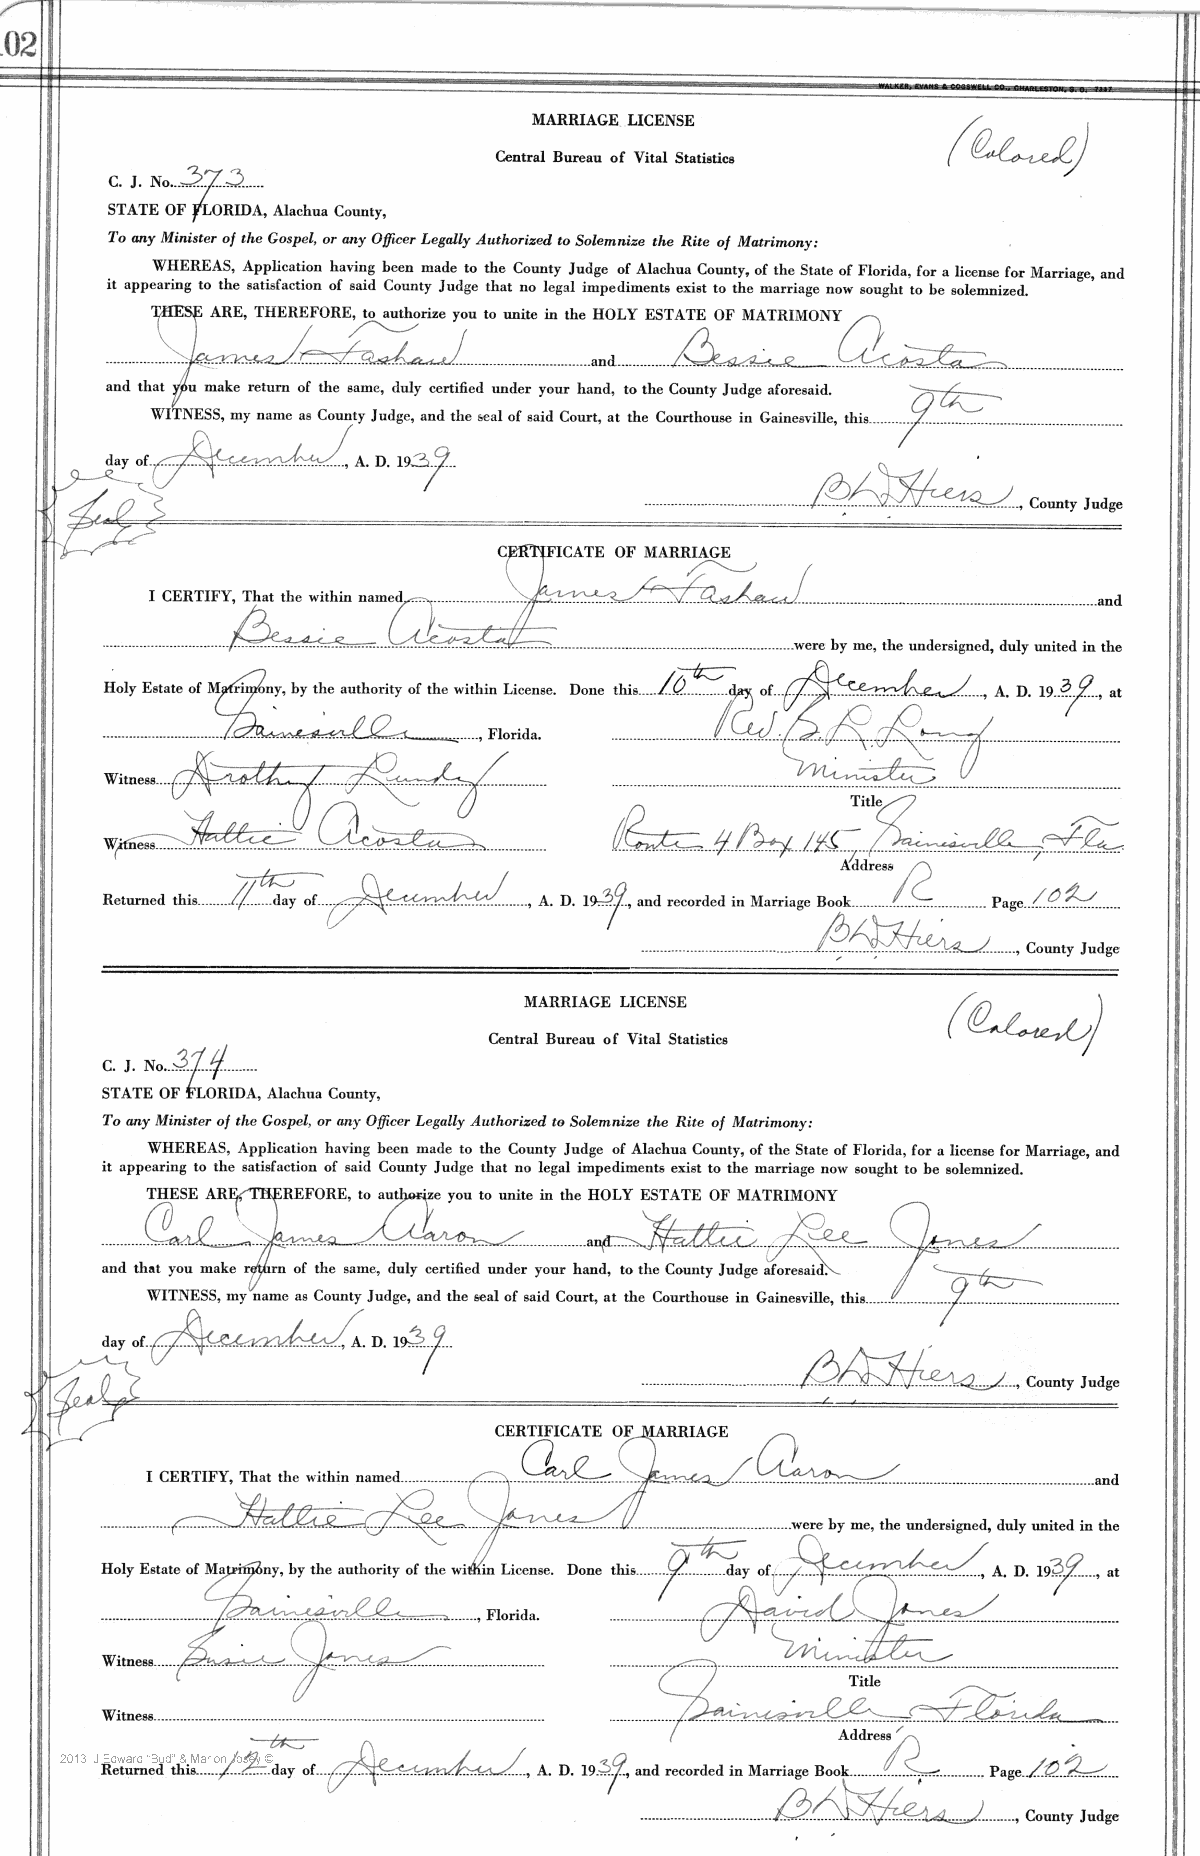 102
WALKER, EVANS & COGSWELL CO., CHARLESTON, S. C. 7337
MARRIAGE LICENSE
Central Bureau of Vital Statistics
(Colored)
C. J. No. 373
STATE OF FLORIDA, Alachua County,
To any Minister of the Gospel, or any Officer Legally Authorized to Solemnize the Rite of Matrimony:
WHEREAS, Application having been made to the County Judge of Alachua County, of the State of Florida, for a license for Marriage, and
it appearing to the satisfaction of said County Judge that no legal impediments exist to the marriage now sought to be solemnized.
THESE ARE, THEREFORE, to authorize you to unite in the HOLY ESTATE OF MATRIMONY
James H Fashaw and Bessie Acosta
and that you make return of the same, duly certified under your hand, to the County Judge aforesaid.
WITNESS, my name as County Judge, and the seal of said Court, at the Courthouse in Gainesville, this 9th
day of December, A. D. 1939
Seal
B D Hiers, County Judge
CERTIFICATE OF MARRIAGE
I CERTIFY, That the within named James H Fashaw and
Bessie Acosta were by me, the undersigned, duly united in the
Holy Estate of Matrimony, by the authority of the within License. Done this 10th day of December, A. D. 1939, at
Gainesville, Florida. Rev. S. L. Long
Witness Drothy Lundy Minister
Title
Witness Hattie Acosta Route 4 Box 145, Gainesville, Fla.
Address
Returned this 11th day of December, A. D. 1939, and recorded in Marriage Book R Page 102
B D Hiers, County Judge
MARRIAGE LICENSE
(Colored)
Central Bureau of Vital Statistics
C. J. No. 374
STATE OF FLORIDA, Alachua County,
To any Minister of the Gospel, or any Officer Legally Authorized to Solemnize the Rite of Matrimony:
WHEREAS, Application having been made to the County Judge of Alachua County, of the State of Florida, for a license for Marriage, and
it appearing to the satisfaction of said County Judge that no legal impediments exist to the marriage now sought to be solemnized.
THESE ARE, THEREFORE, to authorize you to unite in the HOLY ESTATE OF MATRIMONY
Carl James Aaron and Hattie Lee Jones
and that you make return of the same, duly certified under your hand, to the County Judge aforesaid.
WITNESS, my name as County Judge, and the seal of said Court, at the Courthouse in Gainesville, this 9th
day of December, A. D. 1939
B D Hiers, County Judge
Seal
CERTIFICATE OF MARRIAGE
I CERTIFY, That the within named Carl James Aaron and
Hattie Lee Jones were by me, the undersigned, duly united in the
Holy Estate of Matrimony, by the authority of the within License. Done this 9th day of December, A. D. 1939, at
Gainesville, Florida. David Jones
Witness Susie Jones Minister
Title
Witness Gainesville Florida
Address
2013 J Edward "Bud" & Marion Josey ©
Returned this 12th day of December, A. D. 1939, and recorded in Marriage Book R Page 102
B D Hiers, County Judge